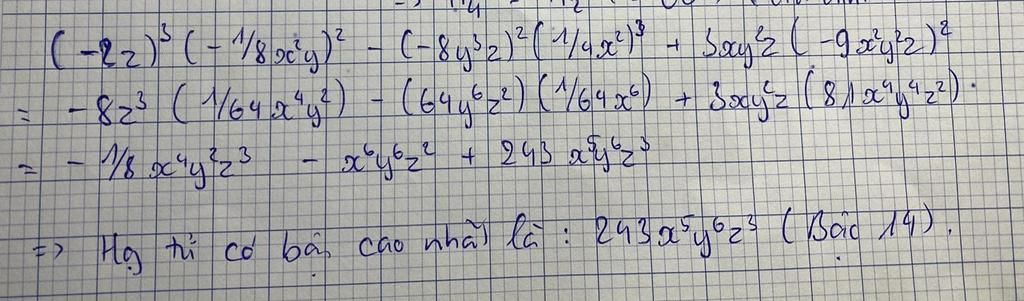 (-2z)³ (-1/8x²y)² - (-8y³z)² (1/4x²)³ + 3xy²z (-9x²y²z)²
= -8z³ (1/64x⁴y²) - (64y⁶z²) (1/64x⁶) + 3xy²z (81x⁴y⁴z²).
= -1/8 x⁴y²z³ - x⁶y⁶z² + 243 x⁵y⁶z³
=> Hạng tử có bậc cao nhất là : 243x⁵y⁶z³ (Bậc 14).